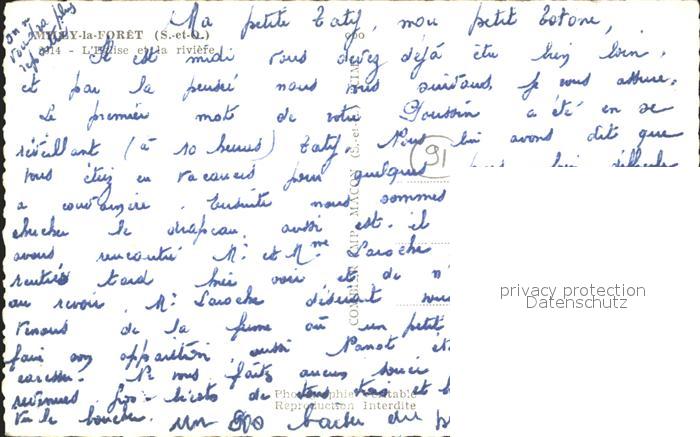 on n
vous
Ma petite Taty, mon petit Totone,
MILLY-la-FORÊT (S.-et-O.)
14 - L'Eglise et la rivière
Il est midi vous devez déjà être bien loin,
et par la pensée nous vous suivons, je vous assure.
Le premier mot de votre Poussin a été en se
réveillant (à 10 heures) Taty. Nous lui avons dit que
vous étiez en vacances pour quelques
91
a convaincre. Ensuite nous sommes
chercher le drapeau, aussi est-il
avons rencontré Mr et Mme Laroche
rentrés tard hier soir et de
au revoir. Mr Laroche désirant
venons de la ferme où un petit
fait son apparition, aussi Nanot
caresser. Ne vous faites aucun souci
de tous trois et
Photographie Véritable
Reproduction Interdite
COMBIER IMP. MACON (S.-et-L.)
bouche. un 500 du
privacy protection
Datenschutz